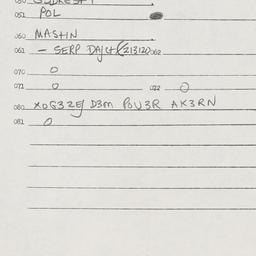 051 POL
060 MASTIN
061 - SERP 213120 062
070 O
071 O 072 O
080 XOG3ZEJ D3M POU3R AK3RN
081 O